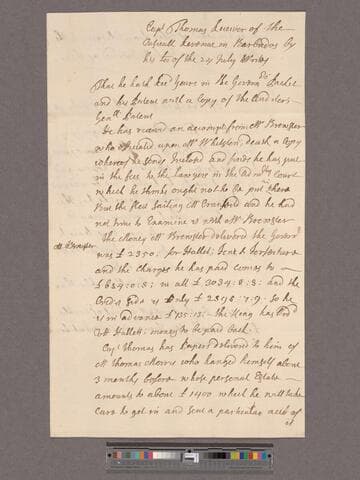 Capt Thomas Receiver of the
Casuall Revenue in Barbados by
his Lr of the 24 July Writes
That he hath Recd Yours in the Governrs Packet
and his Patent with a Copy of the Auditors
Genll Patent
He has received an accompt from Mr Brewster
who Presided upon Mr Whetston's death a Copy
whereof he sends Inclosed and finds he has put
in the fees to the Lawyers in the Adm'ty Court
which he thinks ought not to be put there
But the fleet Sailing and he had
not time to Examine it with Mr Brewster
Mr Brewster
The Money Mr Brewster delivered the Govern'r
was £ 2350: for Hallet, & forfeiture
and the Charges he has paid comes to
£ 684:0:8: in all £ 3034:8:8: and the
Credit side is Only £ 2898:7:9. So he
is in advance £ 135:13: the King has
Mr Halletts money to be paid back.
Cap Thomas has Papers delivered to him of
Mr Thomas Morris who hanged himself about
3 months before whose personal Estate
amounts to about £ 1400 which he will take
Care to get in and send a particular acct of
it